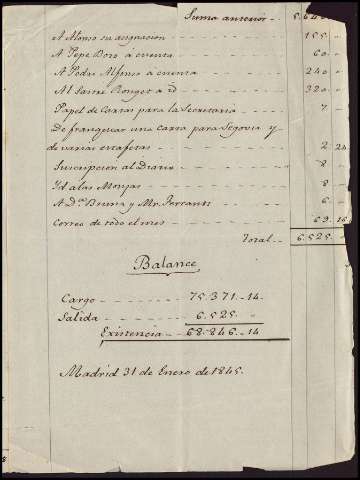 Suma anterior - 5.640
A Alonso su asignacion - 155 -
A Pepe Boro á cuenta - 60 -
A Pedro Alfonso á cuenta - 240 -
Al Sastre Rouget á id - 320 -
Papel de Cartas para la Secretaria - 7 -
De franquear una carta para Segovia y
de varias estafetas - 2 24
Suscripcion al Diario - 8 -
Id a las Monjas - 8
A D.ª Bruna y Mr. - 6 -
Correo de todo el mes - 69. 16
Total - 6.525 -
Balance
Cargo - 75.371 - 14
Salida - 6.525. "
Existencia - 68.846 - 14
Madrid 31 de Enero de 1845.